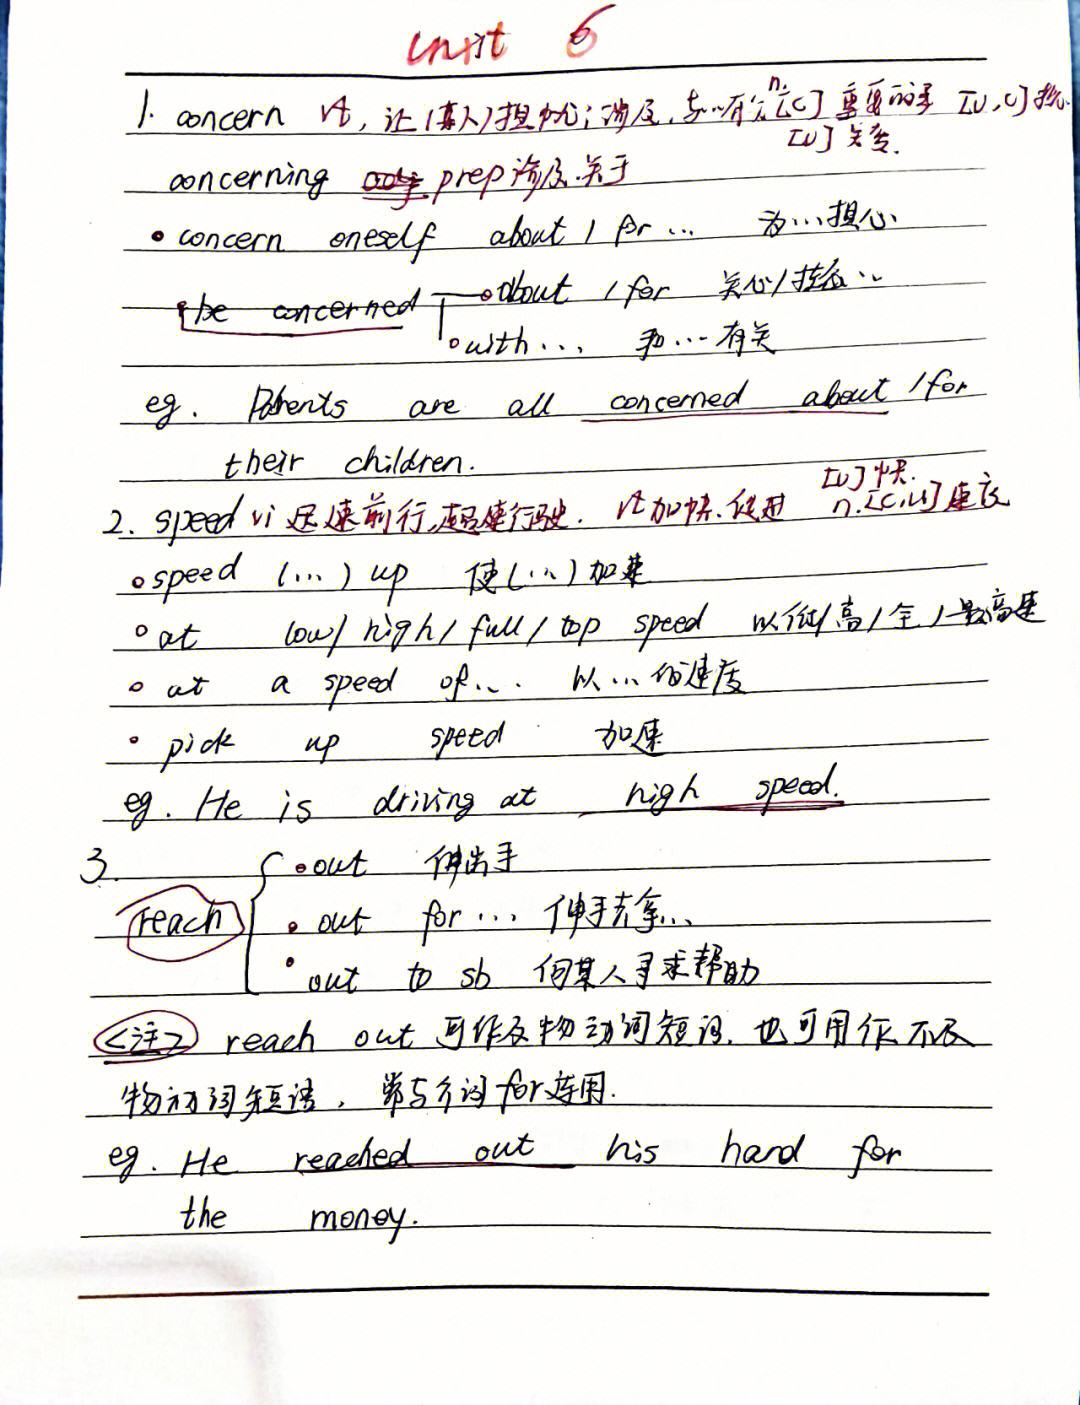 Unit 6
1. concern vt, 让(某人)担忧;涉及,与…有关 n.[C] 重要的事 [U,C] 担忧
[U] 关爱.
concerning prep 涉及.关于
• concern oneself about / for ... 为…担心
• be concerned • about / for 关心/挂念…
• with ... 和…有关
eg. Parents are all concerned about / for
their children.
[U] 快.
2. speed vi 迅速前行,超速行驶. vt 加快.促进 n.[C,U] 速度
• speed (...) up 使(...)加速
• at low/ high/ full / top speed 以低/高/全/最高速
• at a speed of... 以...的速度
• pick up speed 加速
eg. He is driving at high speed.
3.
reach
• out 伸出手
• out for ... 伸手去拿...
• out to sb 向某人寻求帮助
<注> reach out 可作及物动词短语,也可用作不及
物动词短语,常与介词for连用.
eg. He reached out his hand for
the money.